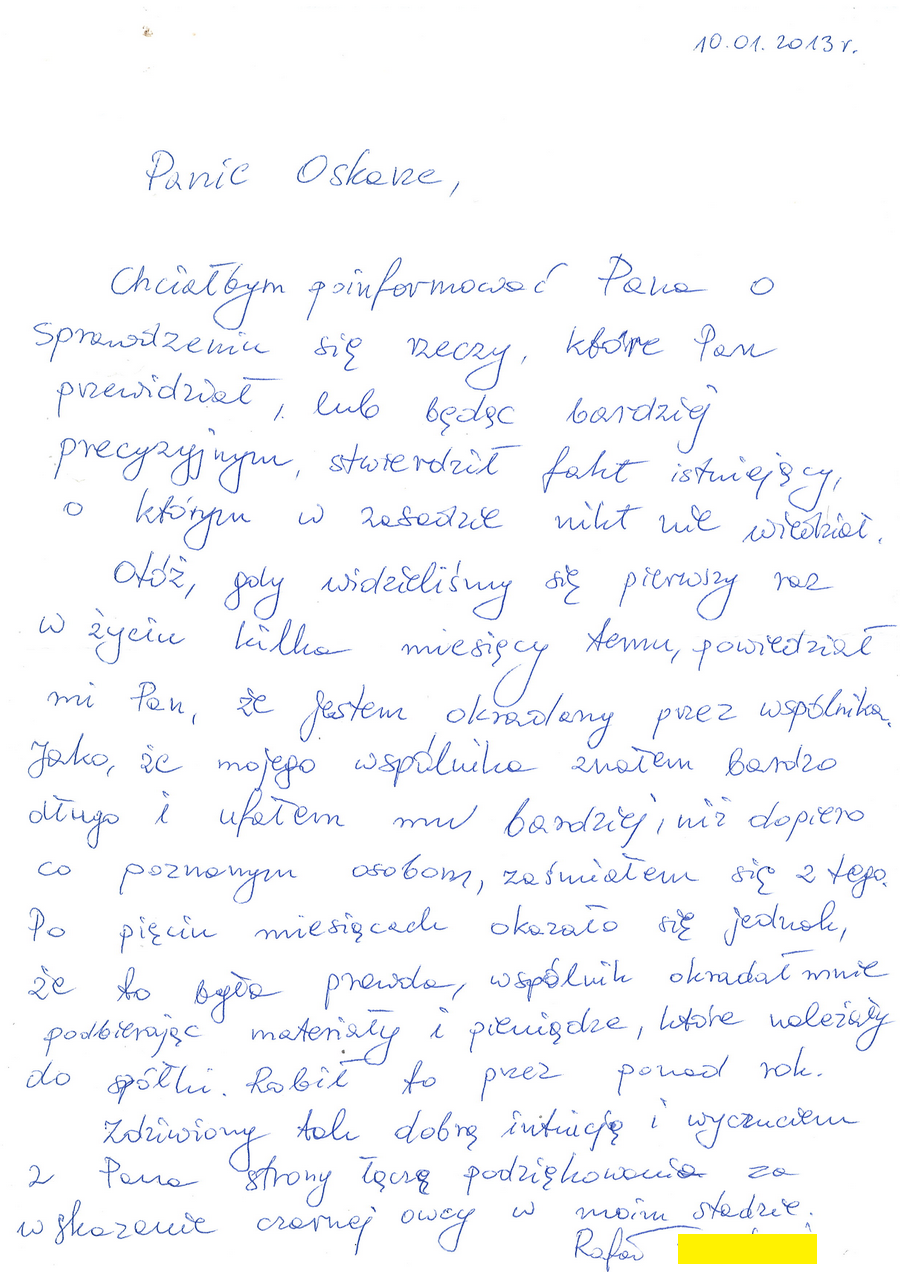 10.01.2013 r.
Panie Oskarze,
Chciałbym poinformować Pana o
sprawdzeniu się rzeczy, które Pan
przewidział, lub będąc bardziej
precyzyjnym, stwierdził fakt istniejący,
o którym w zasadzie nikt nie wiedział.
Otóż, gdy widzieliśmy się pierwszy raz
w życiu kilka miesięcy temu, powiedział
mi Pan, że jestem okradany przez wspólnika.
Jako, że mojego wspólnika znałem bardzo
długo i ufałem mu bardziej, niż dopiero
co poznanym osobom, zaśmiałem się z tego.
Po pięciu miesiącach okazało się jednak,
że to była prawda, wspólnik okradał mnie
podbierając materiały i pieniądze, które należały
do spółki. Robił to przez ponad rok.
Zdziwiony tak dobrą intuicją i wyczuciem
z Pana strony łączę podziękowania za
wskazanie czarnej owcy w moim stadzie.
Rafał